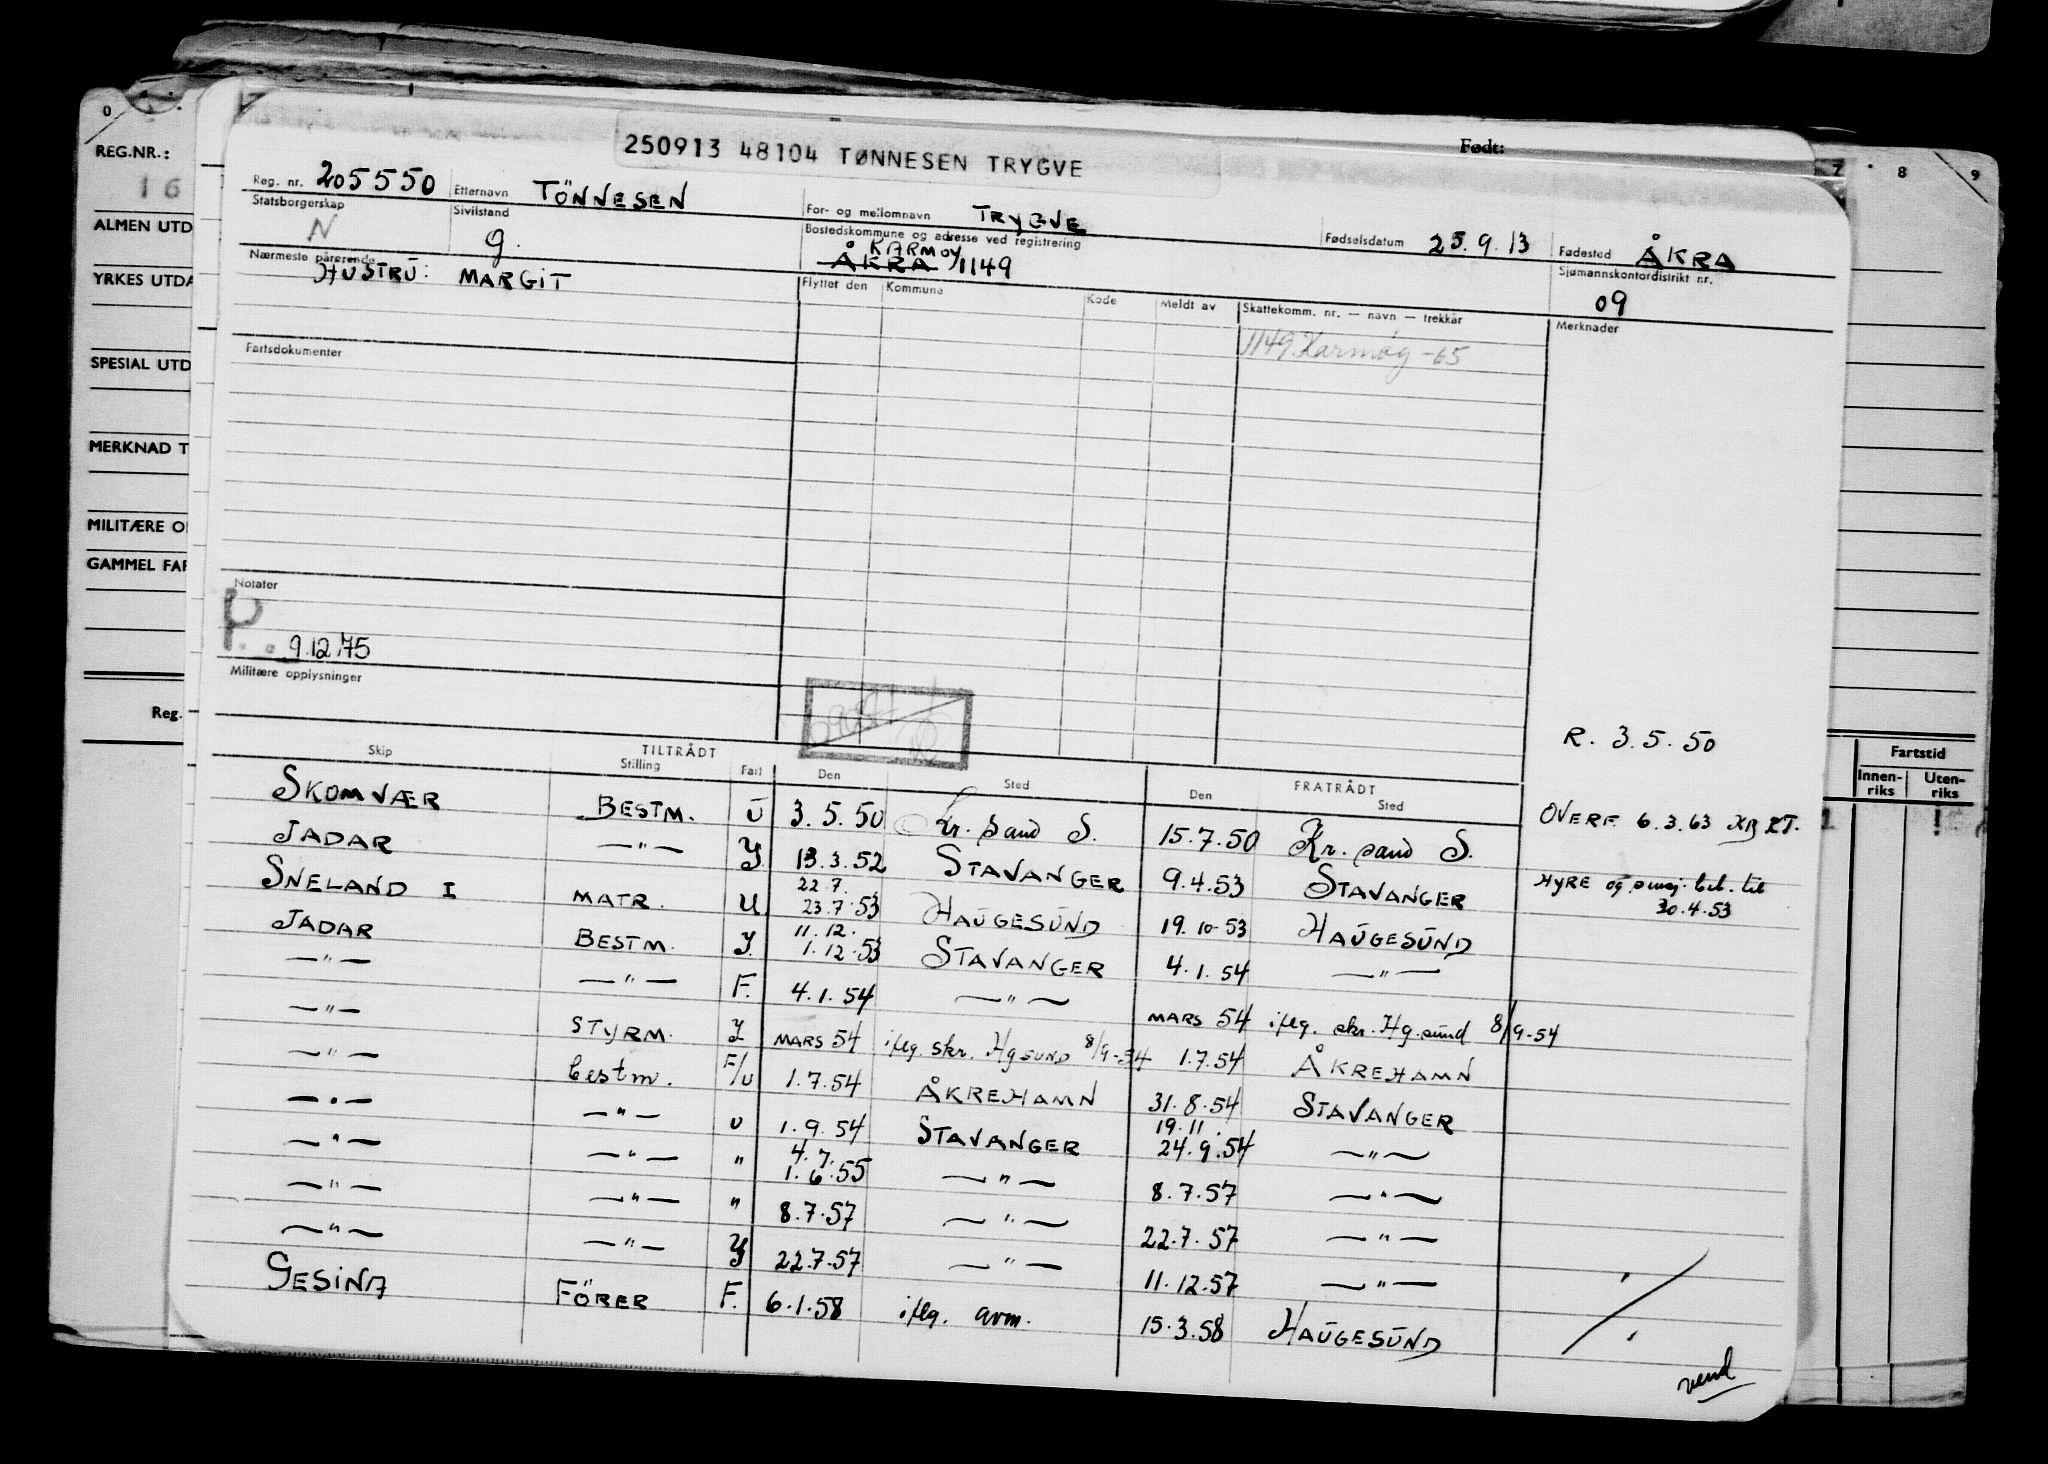 0 7 8 9
REG.NR.:
16
ALMEN UTD
YRKES UTDA
SPESIAL UTD
MERKNAD T
MILITÆRE O
GAMMEL FAR
Reg.
Fartstid
Innenriks Utenriks
Født:
250913 48104 TØNNESEN TRYGVE
Reg. nr. 205550 Etternavn TÖNNESEN For- og mellomnavn TRYGVE Fødselsdatum 25.9.13 Fødested ÅKRA
Statsborgerskap N Sivilstand g. Bostedskommune og adresse ved registrering ÅKRA KARMØY 1149 Sjømannskontordistrikt nr. 09
Nærmeste pårørende HUSTRU: MARGIT
Flyttet den Kommune Kode Meldt av Skattekomm. nr. — navn — trekkår Merknader
1149 Karmøy -65
Fartsdokumenter
Notater
P. 9.12.75
Militære opplysninger
R. 3.5.50
TILTRÅDT FRATRÅDT
Skip Stilling Fart Den Sted Den Sted
SKOMVÆR BESTM. U 3.5.50 Kr. sand S. 15.7.50 Kr. sand S. OVERF. 6.3.63
JADAR —"— Y. 13.3.52 STAVANGER 9.4.53 STAVANGER HYRE og til
30.4.53
SNELAND I MATR. U 22.7. 23.7.53 HAUGESUND 19.10-53 HAUGESUND
JADAR BESTM. Y. 11.12. 1.12.53 STAVANGER 4.1.54 —"—
—"— —"— F. 4.1.54 —"— MARS 54 iflg. skr. Hg.sund 8/9-54
—"— STYRM. Y MARS 54 iflg. skr. Hgsund 8/9-54 1.7.54 ÅKREHAMN
—"— bestm. F/U 1.7.54 ÅKREHAMN 31.8.54 STAVANGER
—"— —"— U 1.9.54 STAVANGER 19.11. 24.9.54 —"—
—"— —"— " 4.7. 1.6.55 —"— 8.7.57 —"—
—"— —"— " 8.7.57 —"— 22.7.57 —"—
—"— —"— Y 22.7.57 —"— 11.12.57 —"—
GESINA FÖRER F. 6.1.58 iflg. avm. 15.3.58 HAUGESUND
vend